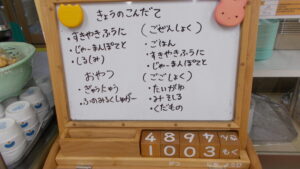 きょうのこんだて
・すきやきふうに
・じゃーまんぽてと
・しる(み)
おやつ
・ぎゅうにゅう
(ごぜんしょく)
・ごはん
・すきやきふうに
・じゃーまんぽてと
(ごごしょく)
・たいがゆ
・みそしる
・くだもの
4 8 9 4
1 0 0 3